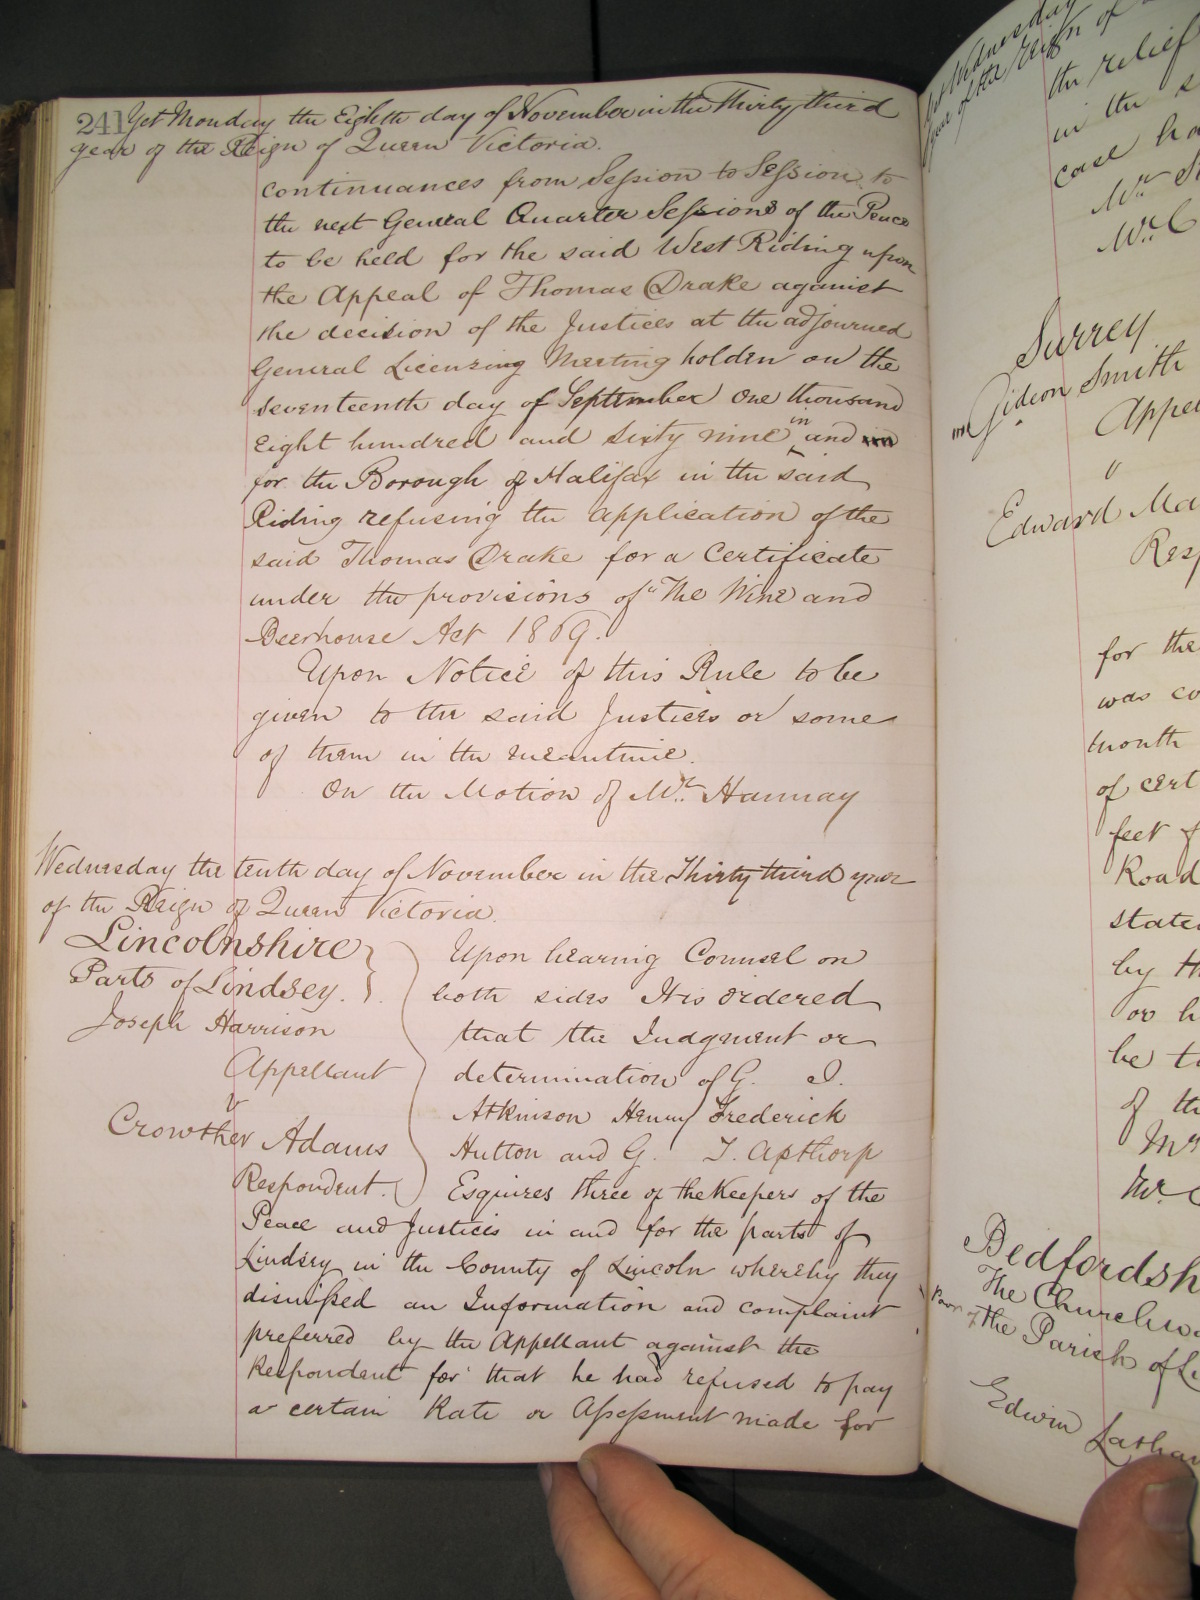 241 Yet Monday the Eighth day of November in the Thirty third
year of the Reign of Queen Victoria.
continuances from Session to Session to
the next General Quarter Sessions of the Peace
to be held for the said West Riding upon
the Appeal of Thomas Drake against
the decision of the Justices at the adjourned
General Licensing Meeting holden on the
seventeenth day of September One thousand
Eight hundred and sixty nine in and
for the Borough of Halifax in the said
Riding refusing the application of the
said Thomas Drake for a Certificate
under the provisions of "The Wine and
Beerhouse Act 1869.
Upon Notice of this Rule to be
given to the said Justices or some
of them in the meantime.
On the Motion of Mr. Hannay
Wednesday the tenth day of November in the Thirty third year
of the Reign of Queen Victoria.
Lincolnshire
Parts of Lindsey.
Joseph Harrison
Appellant
v
Crowther Adams
Respondent.
Upon hearing Counsel on
both sides It is ordered
that the Judgment or
determination of G. I.
Atkinson Henry Frederick
Hutton and G. T. Apthorp
Esquires three of the Keepers of the
Peace and Justices in and for the parts of
Lindsey in the County of Lincoln whereby they
dismissed an Information and complaint
preferred by the Appellant against the
Respondent for that he had refused to pay
a certain Rate or Assessment made for
Yet Wednesday
year of the Reign of
the relief
in the s
case ha
Mr. S
Mr. C
Surrey
Gideon Smith
Appe
v
Edward Ma
Resp
for the
was co
month
of cert
feet f
Road
state
by th
or h
be to
of the
Mr
Mr. C
Bedfordsh
The Churchwa
Poor of the Parish of L
Edwin Latha